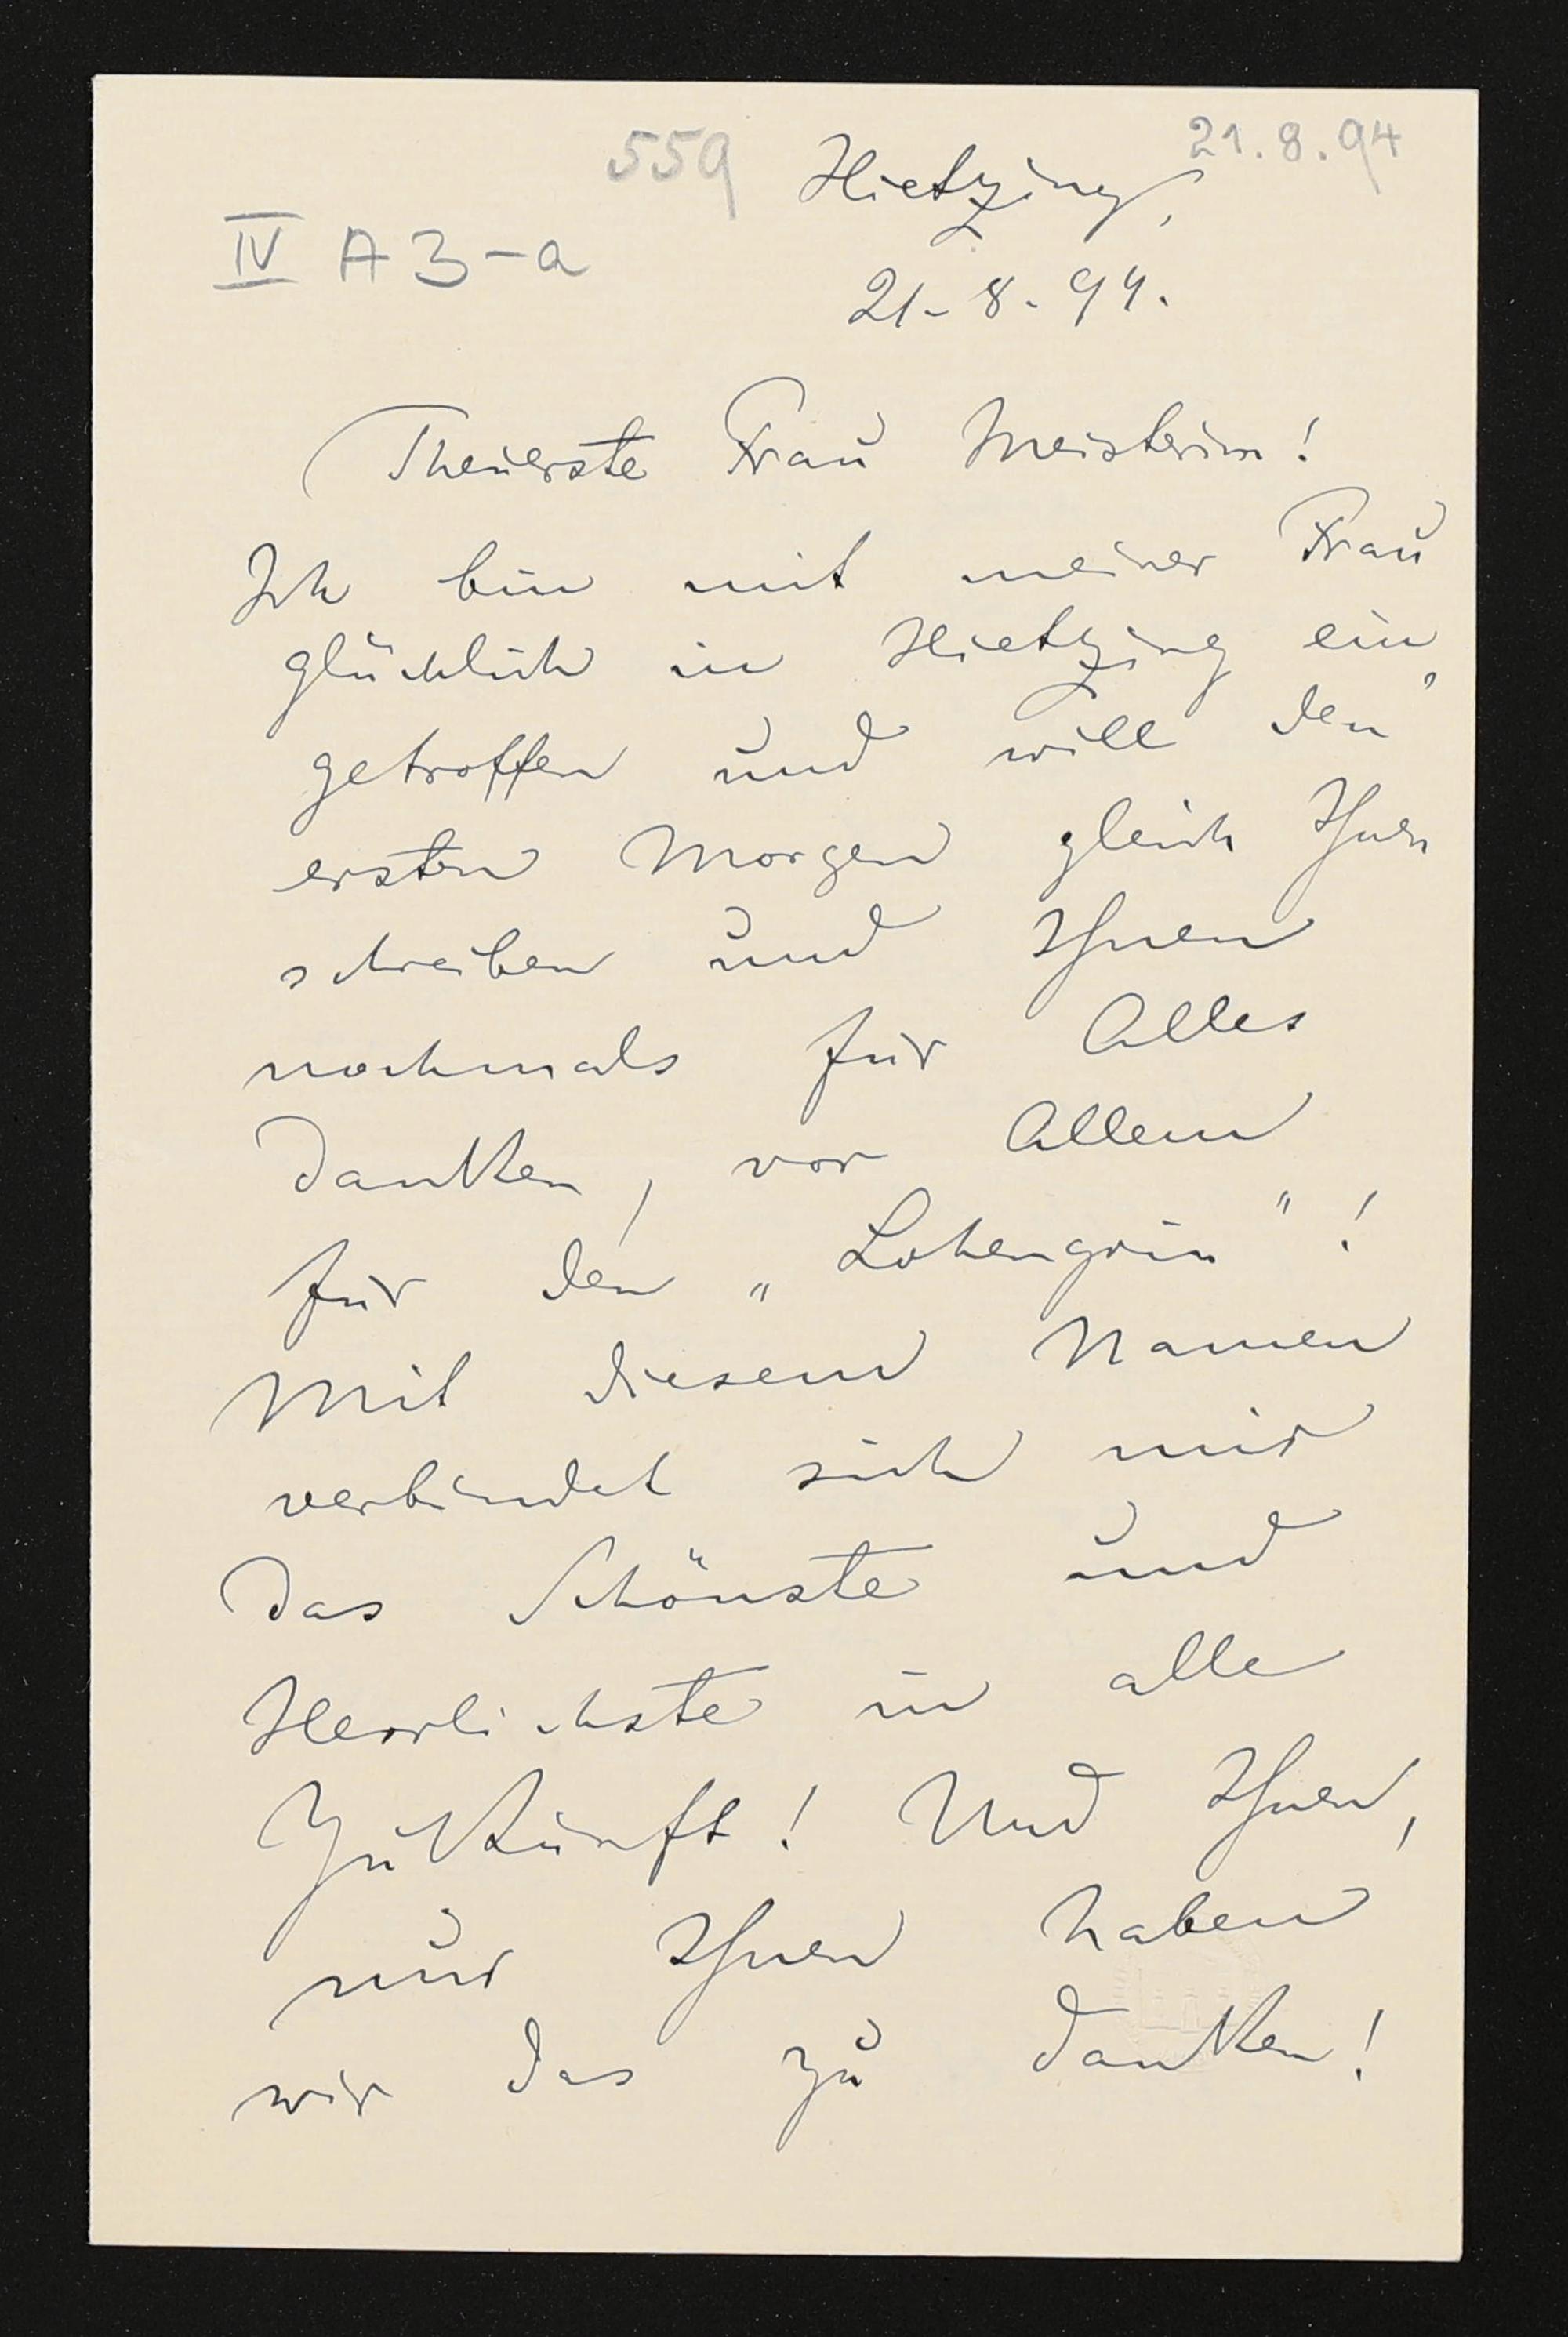 559
21.8.94
Hietzing,
IV A 3-a
21-8-94.
Theuerste Frau Meisterin!
Ich bin mit meiner Frau
glücklich in Hietzing ein„
getroffen und will den
ersten Morgen gleich Ihnen
schreiben und Ihnen
nochmals für Alles
danken, vor Allem
für den „Lohengrin"!
Mit diesem Namen
verbindet sich mir
das Schönste und
Herrlichste in alle
Zukunft! Und Ihnen,
nur Ihnen haben
wir das zu danken!